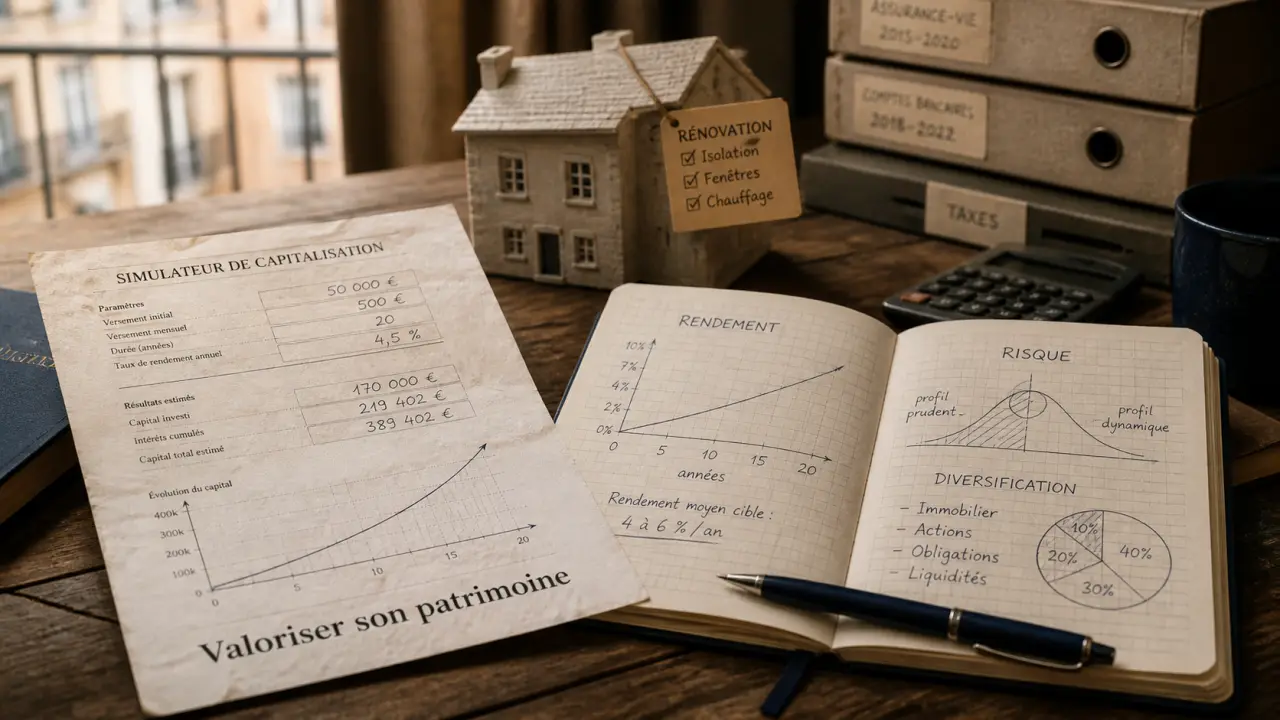 SIMULATEUR DE CAPITALISATION
Paramètres
Versement initial 50 000 €
Versement mensuel 500 €
Durée (années) 20
Taux de rendement annuel 4,5 %
Résultats estimés
Capital investi 170 000 €
Intérêts cumulés 219 402 €
Capital total estimé 389 402 €
Évolution du capital
400k
300k
200k
100k
0
0 5 10 15 20
Valoriser son patrimoine
RÉNOVATION
Isolation
Fenêtres
Chauffage
ASSURANCE-VIE
2015-2020
COMPTES BANCAIRES
2018-2022
TAXES
RENDEMENT
10%
7%
4%
2%
0%
0 5 10 15 20
années
Rendement moyen cible :
4 à 6 % / an
RISQUE
profil
prudent
profil
dynamique
DIVERSIFICATION
- Immobilier
- Actions
- Obligations
- Liquidités
10%
40%
20%
30%